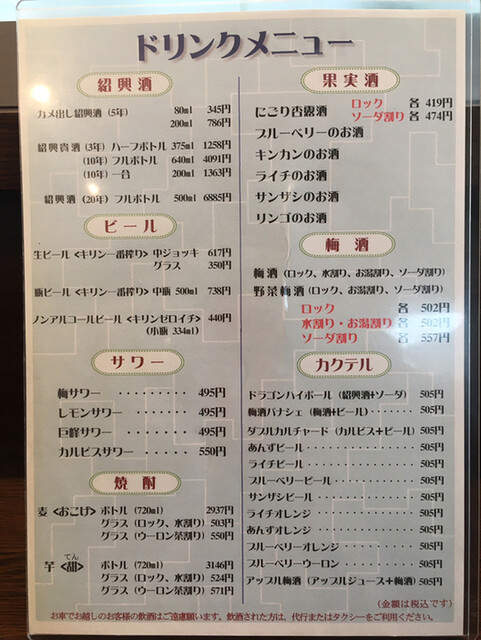 ドリンクメニュー
紹興酒
カメ出し紹興酒(5年) 80ml 345円
200ml 786円
紹興貴酒(3年) ハーフボトル 375ml 1258円
(10年) フルボトル 640ml 4091円
(10年) 一合 200ml 1363円
紹興酒(20年) フルボトル 500ml 6885円
ビール
生ビール<キリン一番搾り> 中ジョッキ 617円
グラス 350円
瓶ビール<キリン一番搾り> 中瓶 500ml 738円
ノンアルコールビール<キリンゼロイチ> 440円
(小瓶 334ml)
サワー
梅サワー ········ 495円
レモンサワー ······ 495円
巨峰サワー ······· 495円
カルピスサワー ····· 550円
焼酎
麦<おこげ> ボトル(720ml) 2937円
グラス(ロック、水割り) 503円
グラス(ウーロン茶割り) 550円
てん
芋<甜> ボトル(720ml) 3146円
グラス(ロック、水割り) 524円
グラス(ウーロン茶割り) 571円
果実酒
にごり杏露酒 ロック 各 419円
ソーダ割り 各 474円
ブルーベリーのお酒
キンカンのお酒
ライチのお酒
サンザシのお酒
リンゴのお酒
梅酒
梅酒(ロック、水割り、お湯割り、ソーダ割り)
野菜梅酒(ロック、水割り、お湯割り、ソーダ割り)
ロック 各 502円
水割り・お湯割り 各 502円
ソーダ割り 各 557円
カクテル
ドラゴンハイボール(紹興酒+ソーダ) 505円
梅酒パナシェ(梅酒+ビール)······· 505円
ダブルカルチャード(カルピス+ビール) 505円
あんずビール ·········· 505円
ライチビール ·········· 505円
ブルーベリービール ······· 505円
サンザシビール ········· 505円
ライチオレンジ ········· 505円
あんずオレンジ ········· 505円
ブルーベリーオレンジ ······ 505円
ブルーベリーウーロン ······ 505円
アップル梅酒(アップルジュース+梅酒) 505円
(金額は税込です)
お車でお越しのお客様の飲酒はご遠慮願います。飲酒された方は、代行またはタクシーをご利用ください。